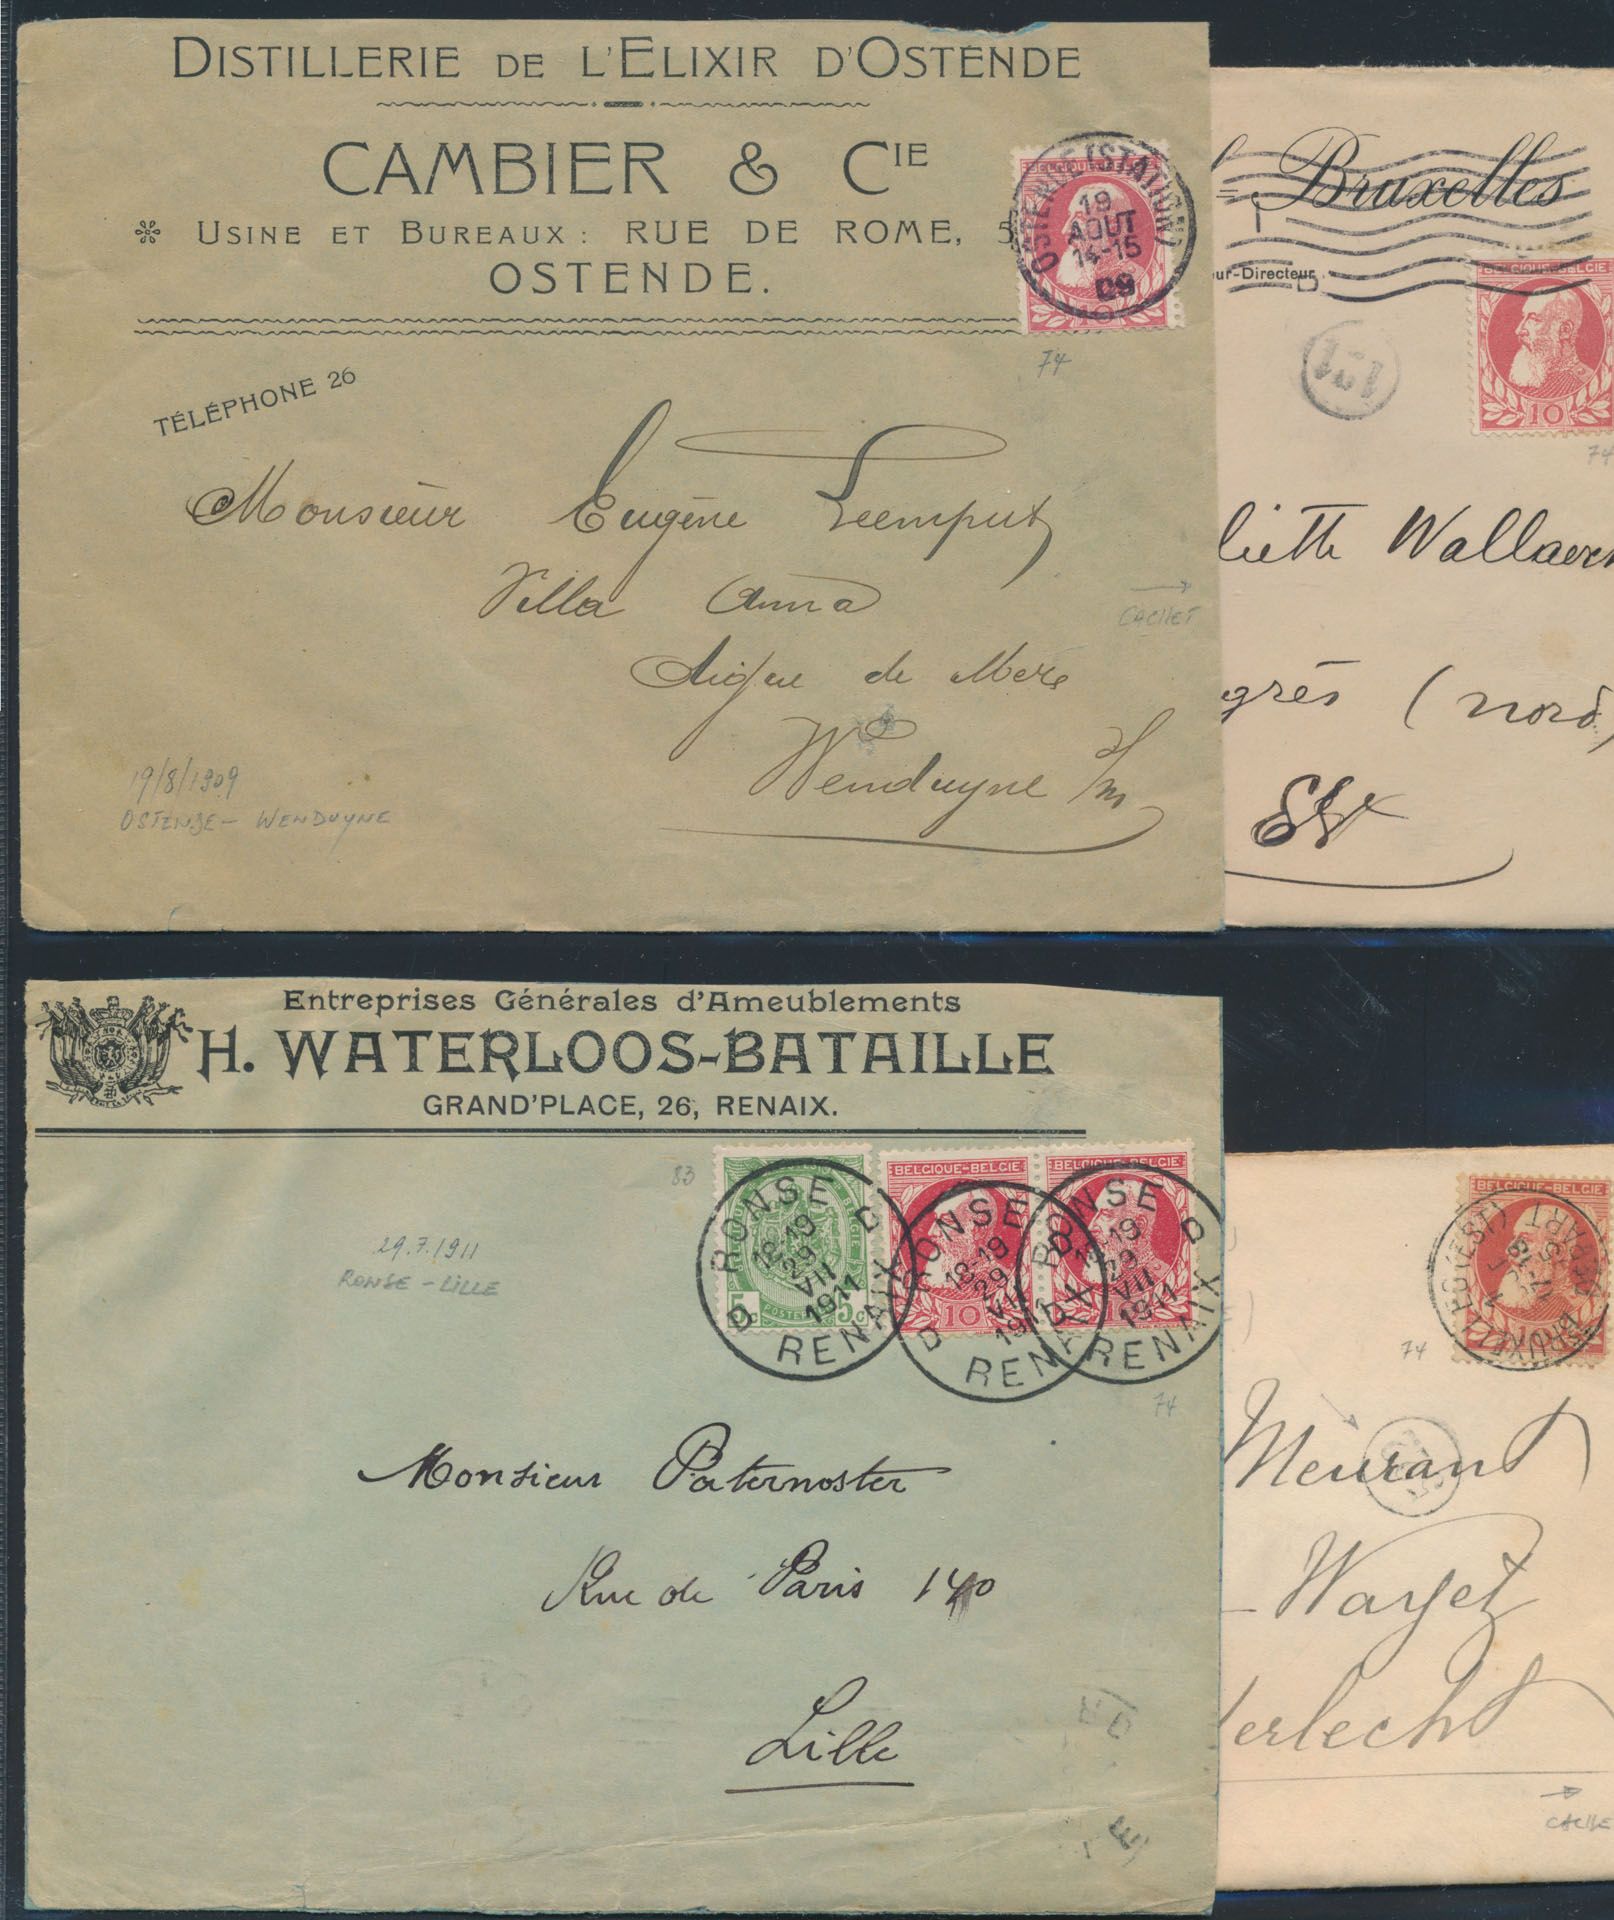 DISTILLERIE DE L'ELIXIR D'OSTENDE
CAMBIER & CIE
USINE ET BUREAUX: RUE DE ROME, 5
OSTENDE.
TÉLÉPHONE 26
BELGIQUE-BELGIE
OSTENDE (STATION)
19
AOUT
14-15
09
10
74
Monsieur Eugène Leemput
Villa Anna
Digue de Mere
Wenduyne s/m
CACHET
19/8/1909
OSTENDE - WENDUYNE
Bruxelles
ur-Directeur
BELGIQUE-BELGIE
10
74
liette Wallaert
grès (nord)
E/V
Entreprises Générales d'Ameublements
H. WATERLOOS-BATAILLE
GRAND'PLACE, 26, RENAIX.
83
POSTERIJEN
5c
BELGIQUE-BELGIE
BELGIQUE-BELGIE
10
RONSE
18-19
29
VII
1911
D RENAIX D
RONSE
18-19
29
VII
1911
D RENAIX
RONSE
18-19
29
VII
1911
D RENAIX D
74
29.7.1911
RONSE - LILLE
Monsieur Paternoster
Rue de Paris 140
Lille
BELGIQUE-BELGIE
BRUXELLES (EST)
DEPART
74
Meurant
Wayez
derlecht
CACHE